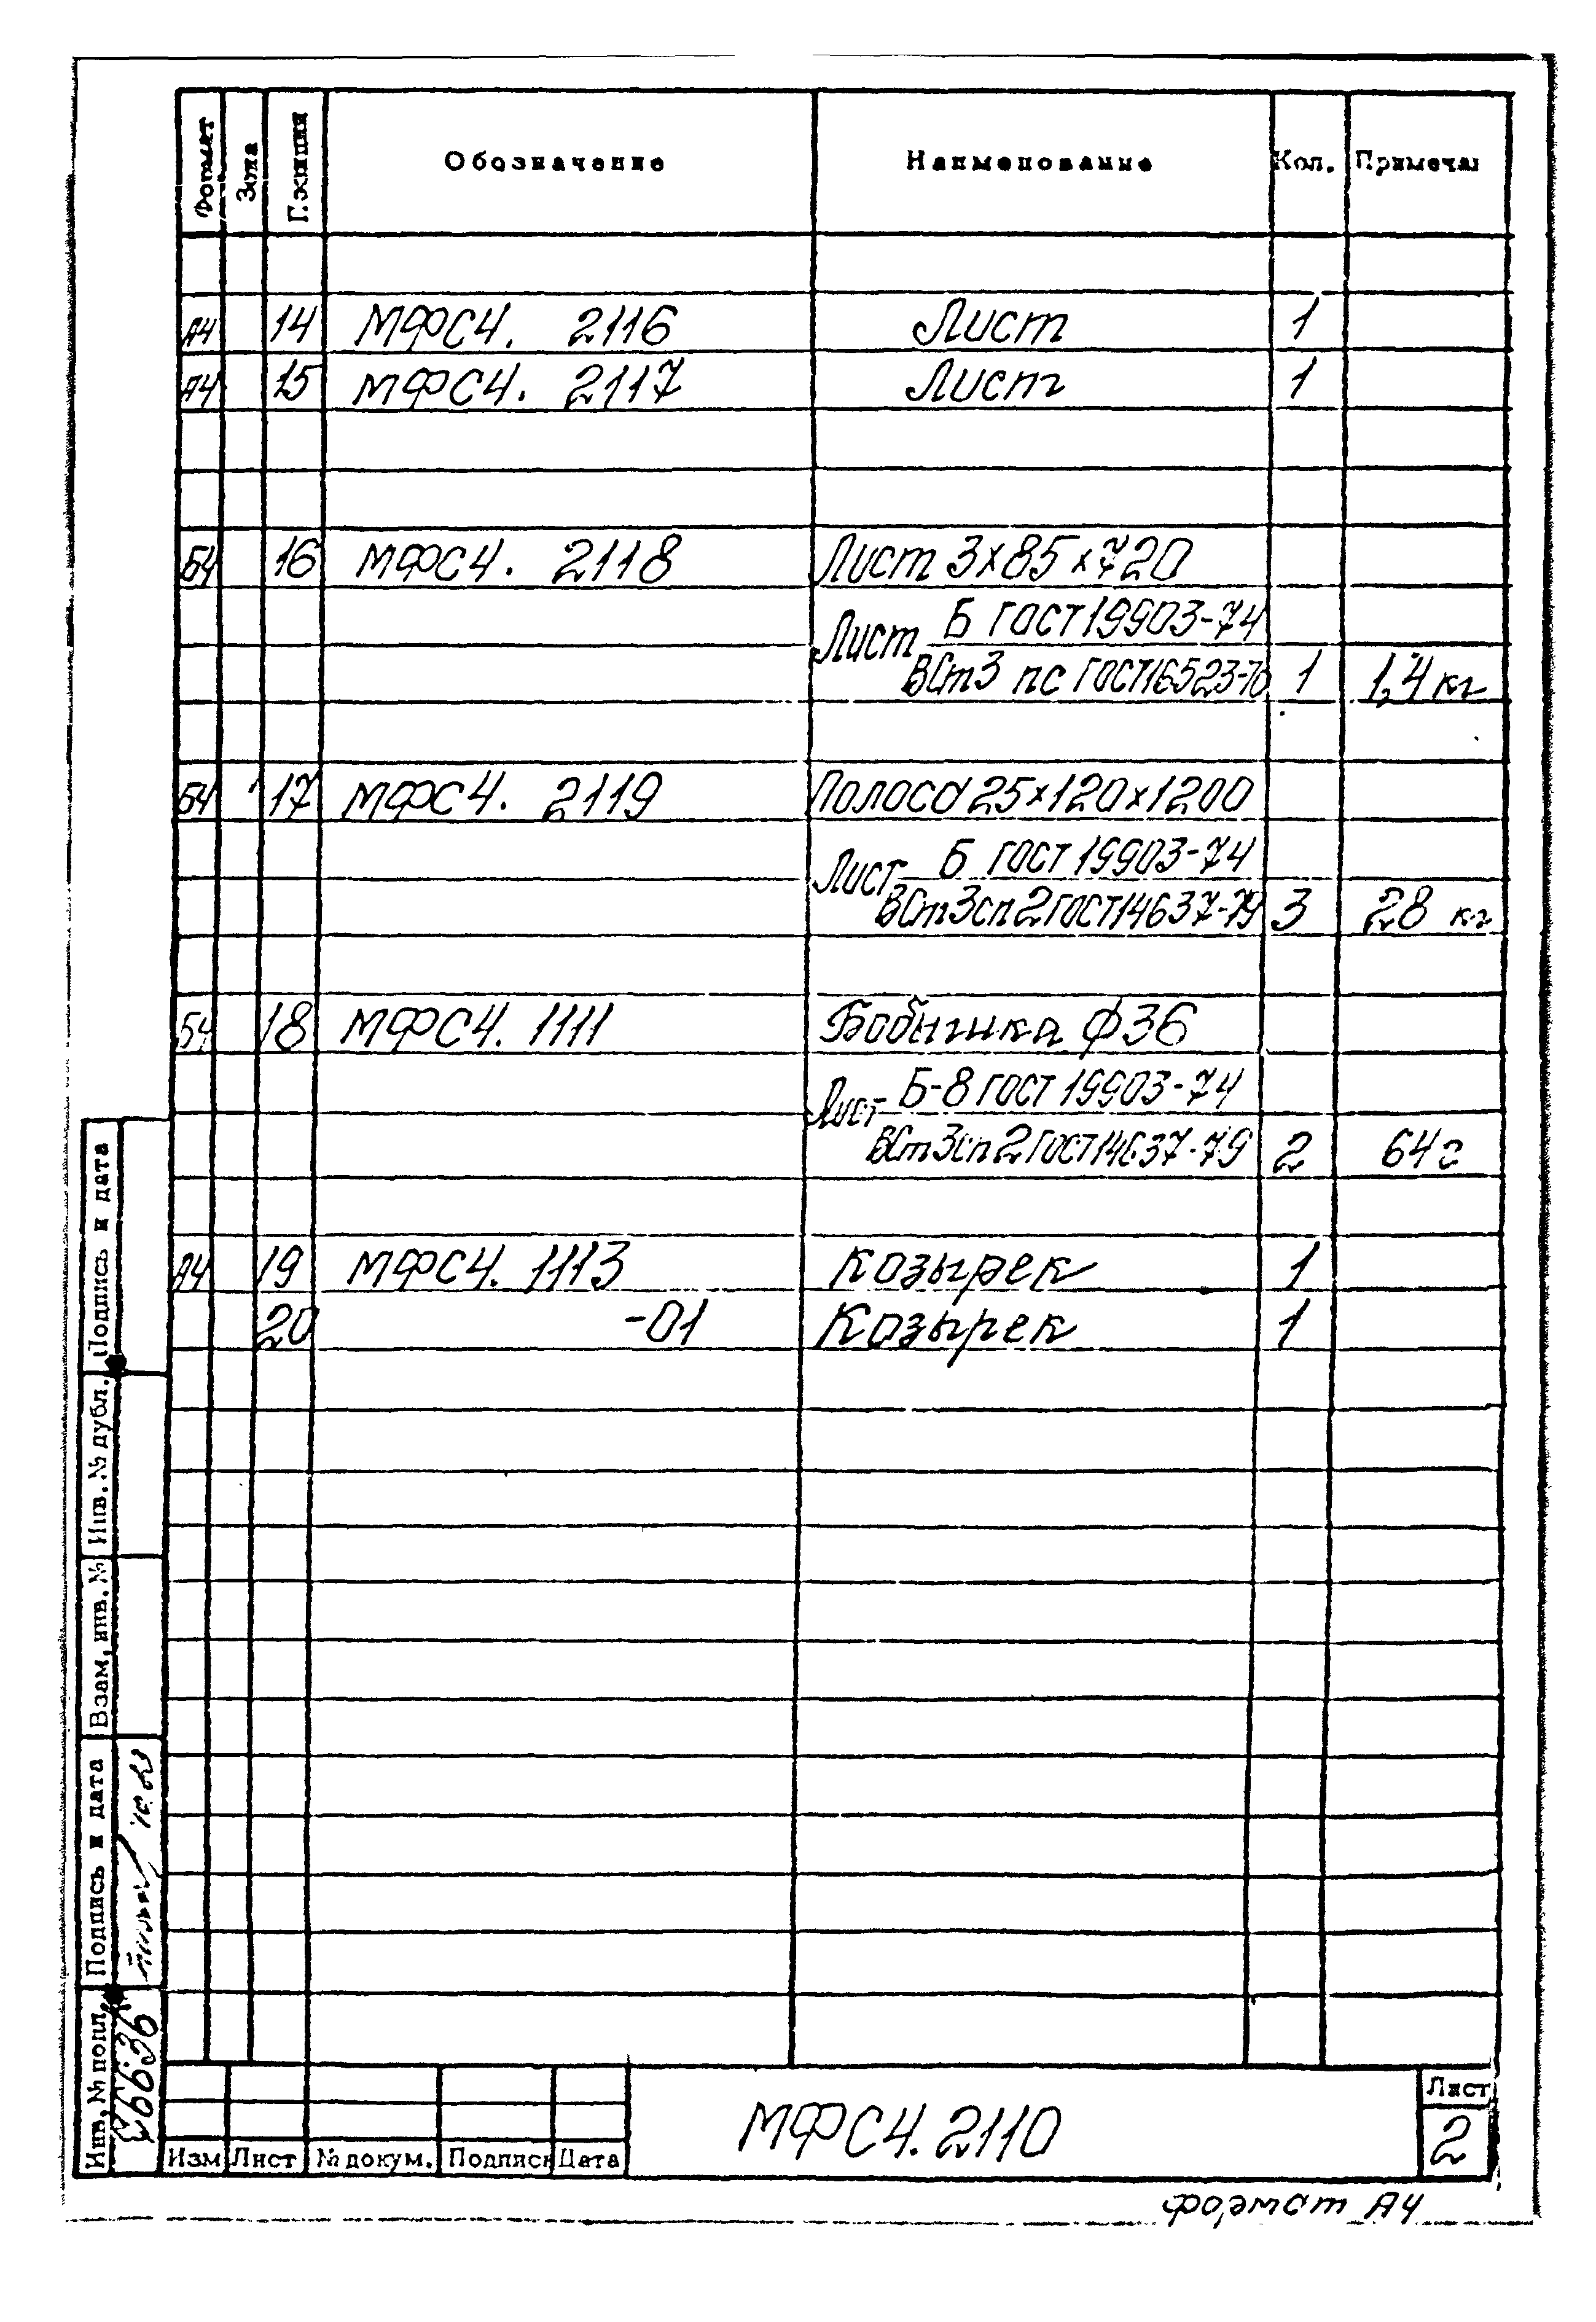 Формат Зона Позиция Обозначение Наименование Кол. Примечан
А4 14 МФС4. 2116 Лист 1
А4 15 МФС4. 2117 Лист 1
Б4 16 МФС4. 2118 Лист 3х85х720
Лист Б ГОСТ 19903-74
ВСт3 пс ГОСТ 16523-70 1 1,4 кг
Б4 17 МФС4. 2119 Полоса 25х120х1200
Лист Б ГОСТ 19903-74
ВСт3сп2 ГОСТ 14637-79 3 28 кг
Б4 18 МФС4. 1111 Бобышка Ф36
Лист Б-8 ГОСТ 19903-74
ВСт3сп2 ГОСТ 14637-79 2 64 г
А4 19 МФС4. 1113 Козырек 1
20 -01 Козырек 1
Подпись и дата
Инв. № дубл.
Взам. инв. №
Подпись и дата
Инв. № подл.
Изм Лист № докум. Подпись Дата
МФС4. 2110
Лист
2
Формат А4